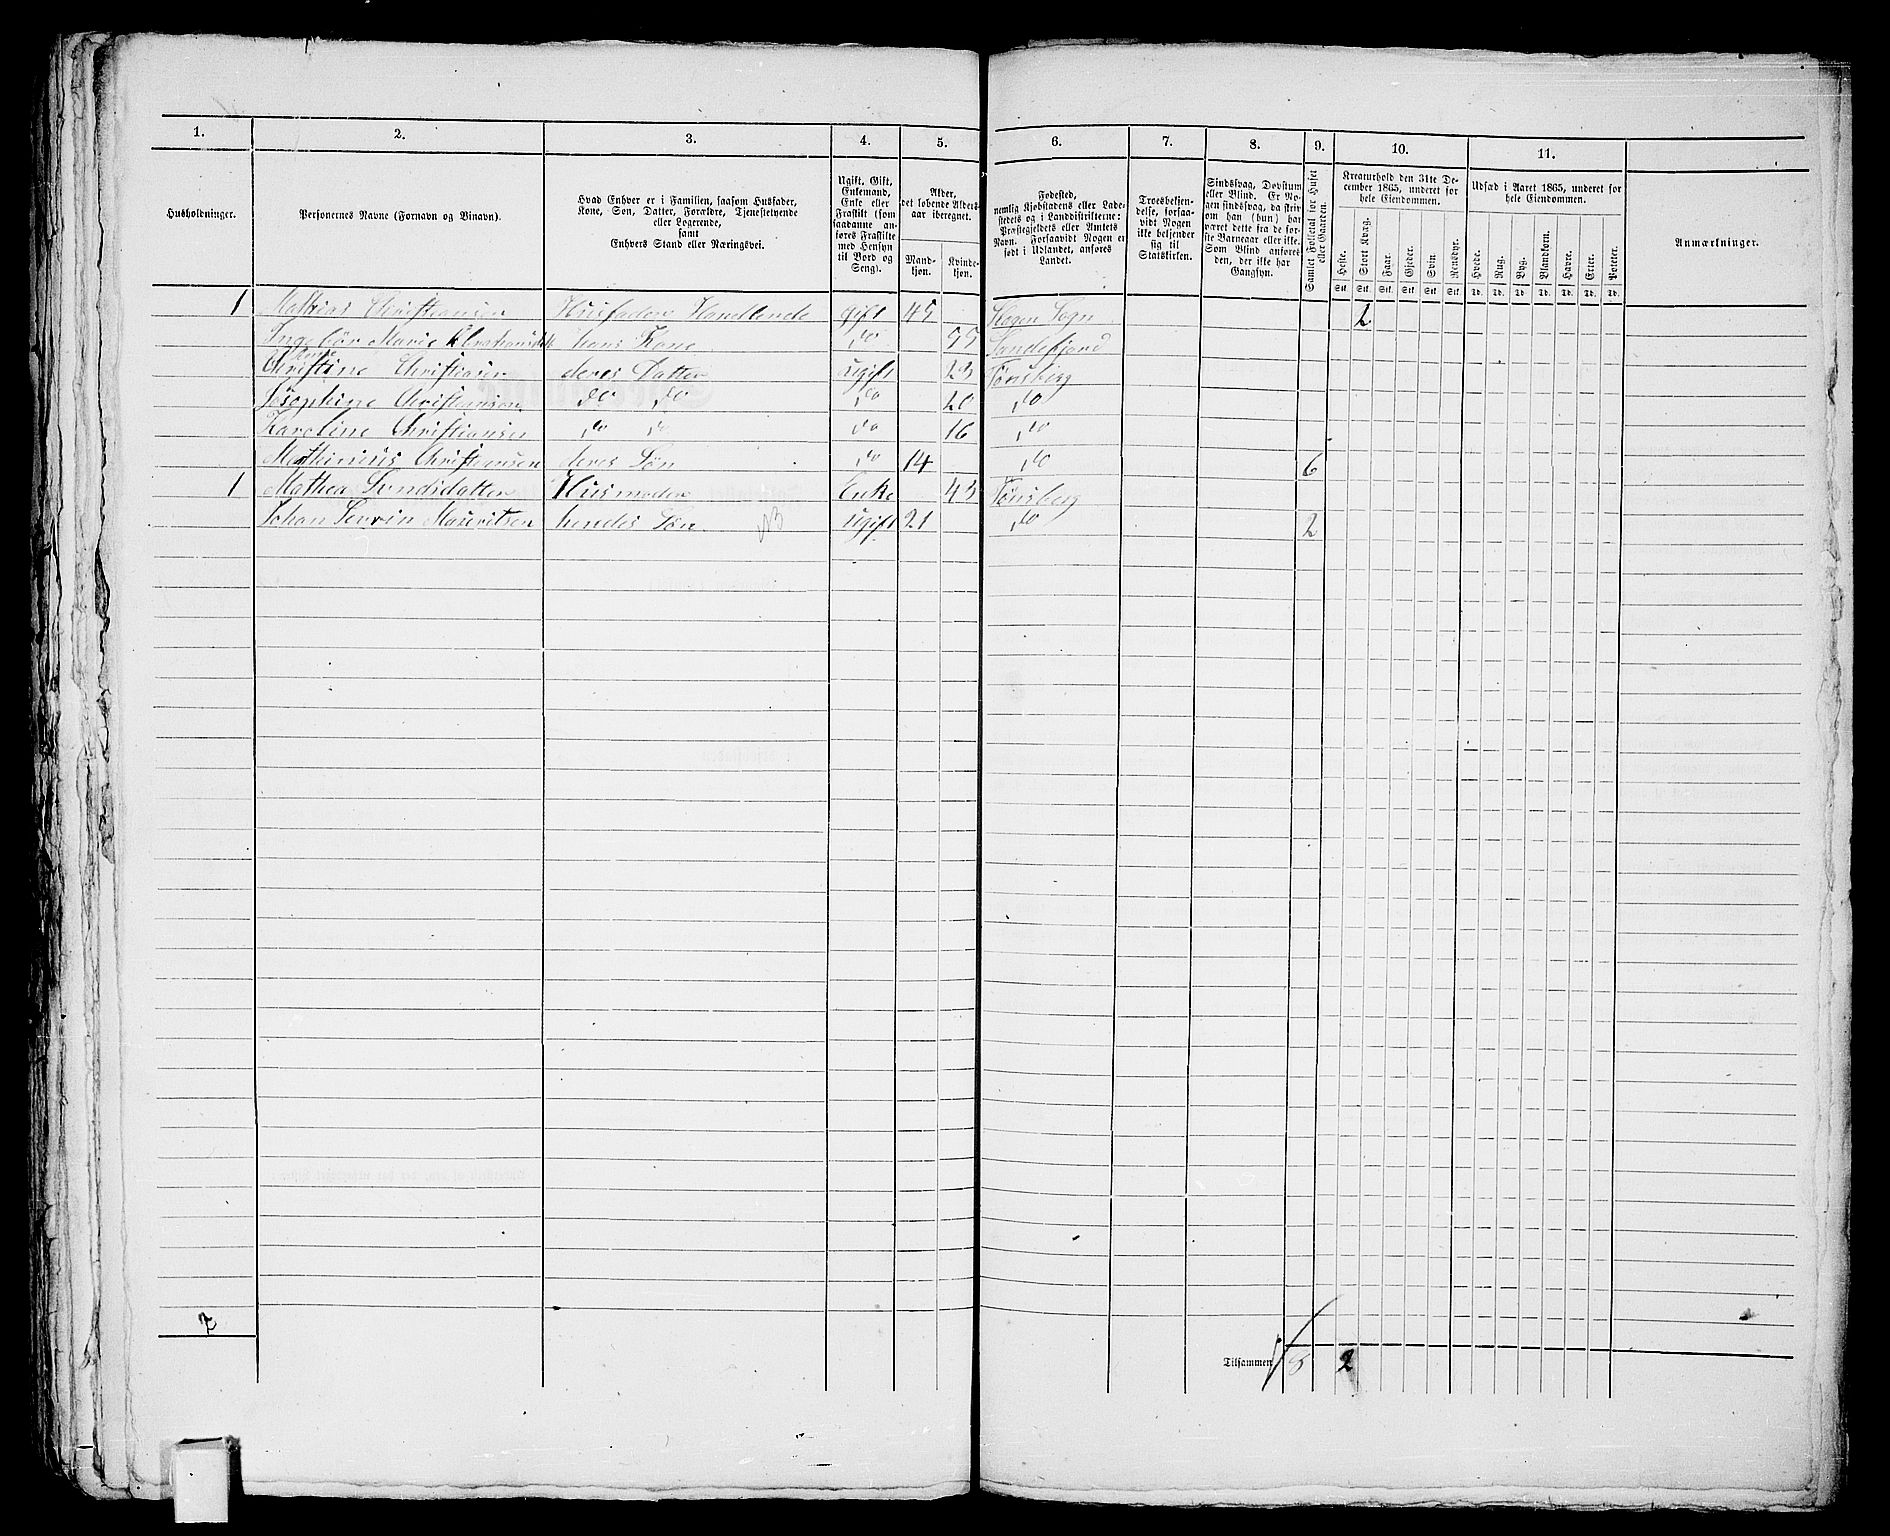 1. 2. 3. 4. 5. 6. 7. 8. 9. 10. 11.
Husholdninger. Personernes Navne (Fornavn og Binavn). Hvad Enhver er i Familien, saasom Husfader, Kone, Søn, Datter, Forældre, Tjenestetyende eller Logerende, samt Enhvers Stand eller Næringsvei. Ugift, Gift, Enkemand, Enke eller Fraskilt (som saadanne anføres Fraskilte med Hensyn til Bord og Seng). Alder, det løbende Alders-aar iberegnet. Mand-kjøn. Kvinde-kjøn. Fødested, nemlig Kjøbstadens eller Lade-stedets og i Landdistrikterne: Præstegjeldets eller Amtets Navn. Forsaavidt Nogen er født i Udlandet, anføres Landet. Troesbekjen-delse, forsaa-vidt Nogen ikke bekjender sig til Statskirken. Sindssvag, Døvstum eller Blind. Er No-gen sindssvag, da skriv om han (hun) har været dette fra de før-ste Barneaar eller ikke. Som Blind anføres den, der ikke har Gangsyn. Samlet Folketal for Huset eller Gaarden. Kreaturhold den 31te De-cember 1865, underet for hele Eiendommen. Heste. Stort Kvæg. Faar. Gjeder. Svin. Rensdyr. Udsæd i Aaret 1865, underet for hele Eiendommen. Hvede. Rug. Byg. Blandkorn. Havre. Erter. Poteter. Anmærkninger.
Stk. Stk. Stk. Stk. Stk. Stk. Td. Td. Td. Td. Td. Td. Td.
1 Mathias Christiansen Husfader Handlende gift 45 Sogn 2
Ingebór Marie hans Kone do 55 Sandefjord
Christine Christiansen deres Datter ugift 23 Tönsberg
Josephine Christiansen do do do 20 do
Karoline Christiansen do do do 16 do
Mathinius Christiansen deres Søn do 14 do 6
1 Mathea Husmoder Enke 43 Tönsberg
Johan Mauritsen hendes Søn ugift 21 do 2
2
Tilsammen 8 2